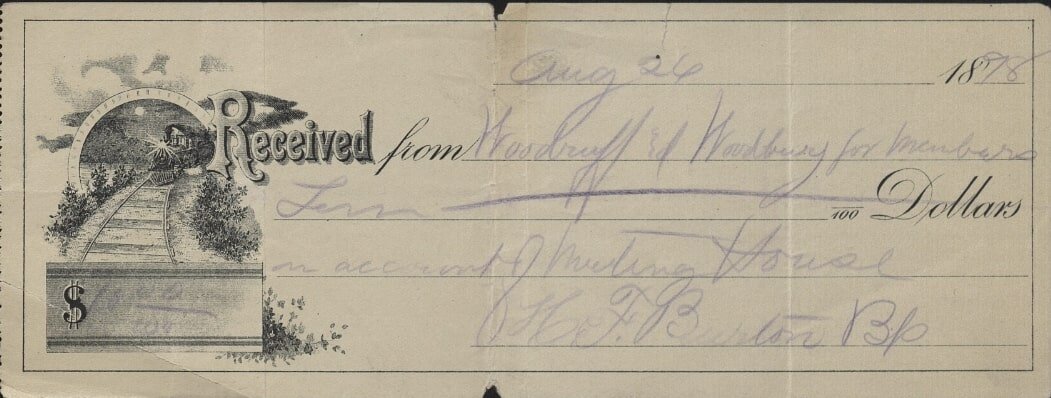 Aug 26 1898
Received from Woodruff Ed Woodbury for Members
100 Dollars
on account of Meeting House
$ 10.00/100
H. F. Burton Bp